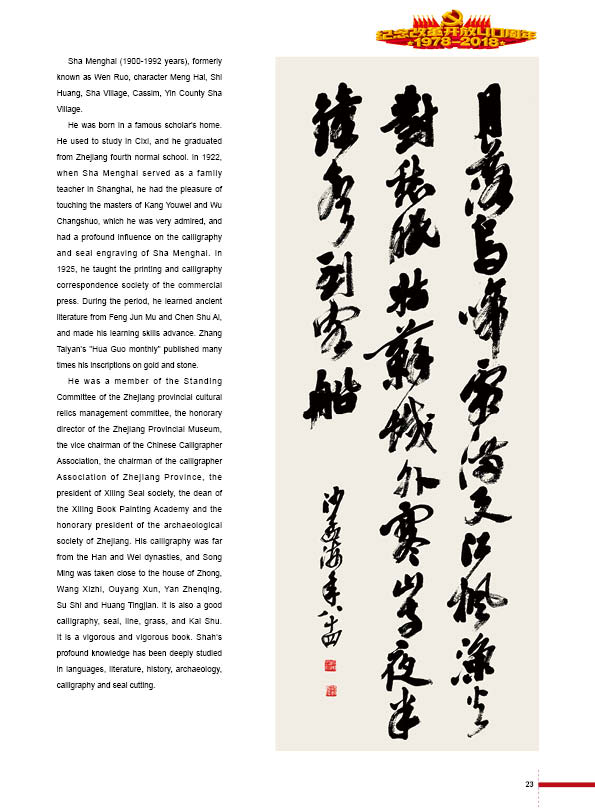 纪念改革开放40周年
1978-2018
Sha Menghai (1900-1992 years), formerly
known as Wen Ruo, character Meng Hai, Shi
Huang, Sha Village, Cassim, Yin County Sha
Village.
He was born in a famous scholar's home.
He used to study in Cixi, and he graduated
from Zhejiang fourth normal school. In 1922,
when Sha Menghai served as a family
teacher in Shanghai, he had the pleasure of
touching the masters of Kang Youwei and Wu
Changshuo, which he was very admired, and
had a profound influence on the calligraphy
and seal engraving of Sha Menghai. In
1925, he taught the printing and calligraphy
correspondence society of the commercial
press. During the period, he learned ancient
literature from Feng Jun Mu and Chen Shu Ai,
and made his learning skills advance. Zhang
Taiyan's "Hua Guo monthly" published many
times his inscriptions on gold and stone.
He was a member of the Standing
Committee of the Zhejiang provincial cultural
relics management committee, the honorary
director of the Zhejiang Provincial Museum,
the vice chairman of the Chinese Calligrapher
Association, the chairman of the calligrapher
Association of Zhejiang Province, the
president of Xiling Seal society, the dean of
the Xiling Book Painting Academy and the
honorary president of the archaeological
society of Zhejiang. His calligraphy was far
from the Han and Wei dynasties, and Song
Ming was taken close to the house of Zhong,
Wang Xizhi, Ouyang Xun, Yan Zhenqing,
Su Shi and Huang Tingjian. It is also a good
calligraphy, seal, line, grass, and Kai Shu.
It is a vigorous and vigorous book. Shah's
profound knowledge has been deeply studied
in languages, literature, history, archaeology,
calligraphy and seal cutting.
月落烏啼霜滿天江楓漁火
對愁眠姑蘇城外寒山寺夜半
鐘聲到客船
沙孟海年八十四
23